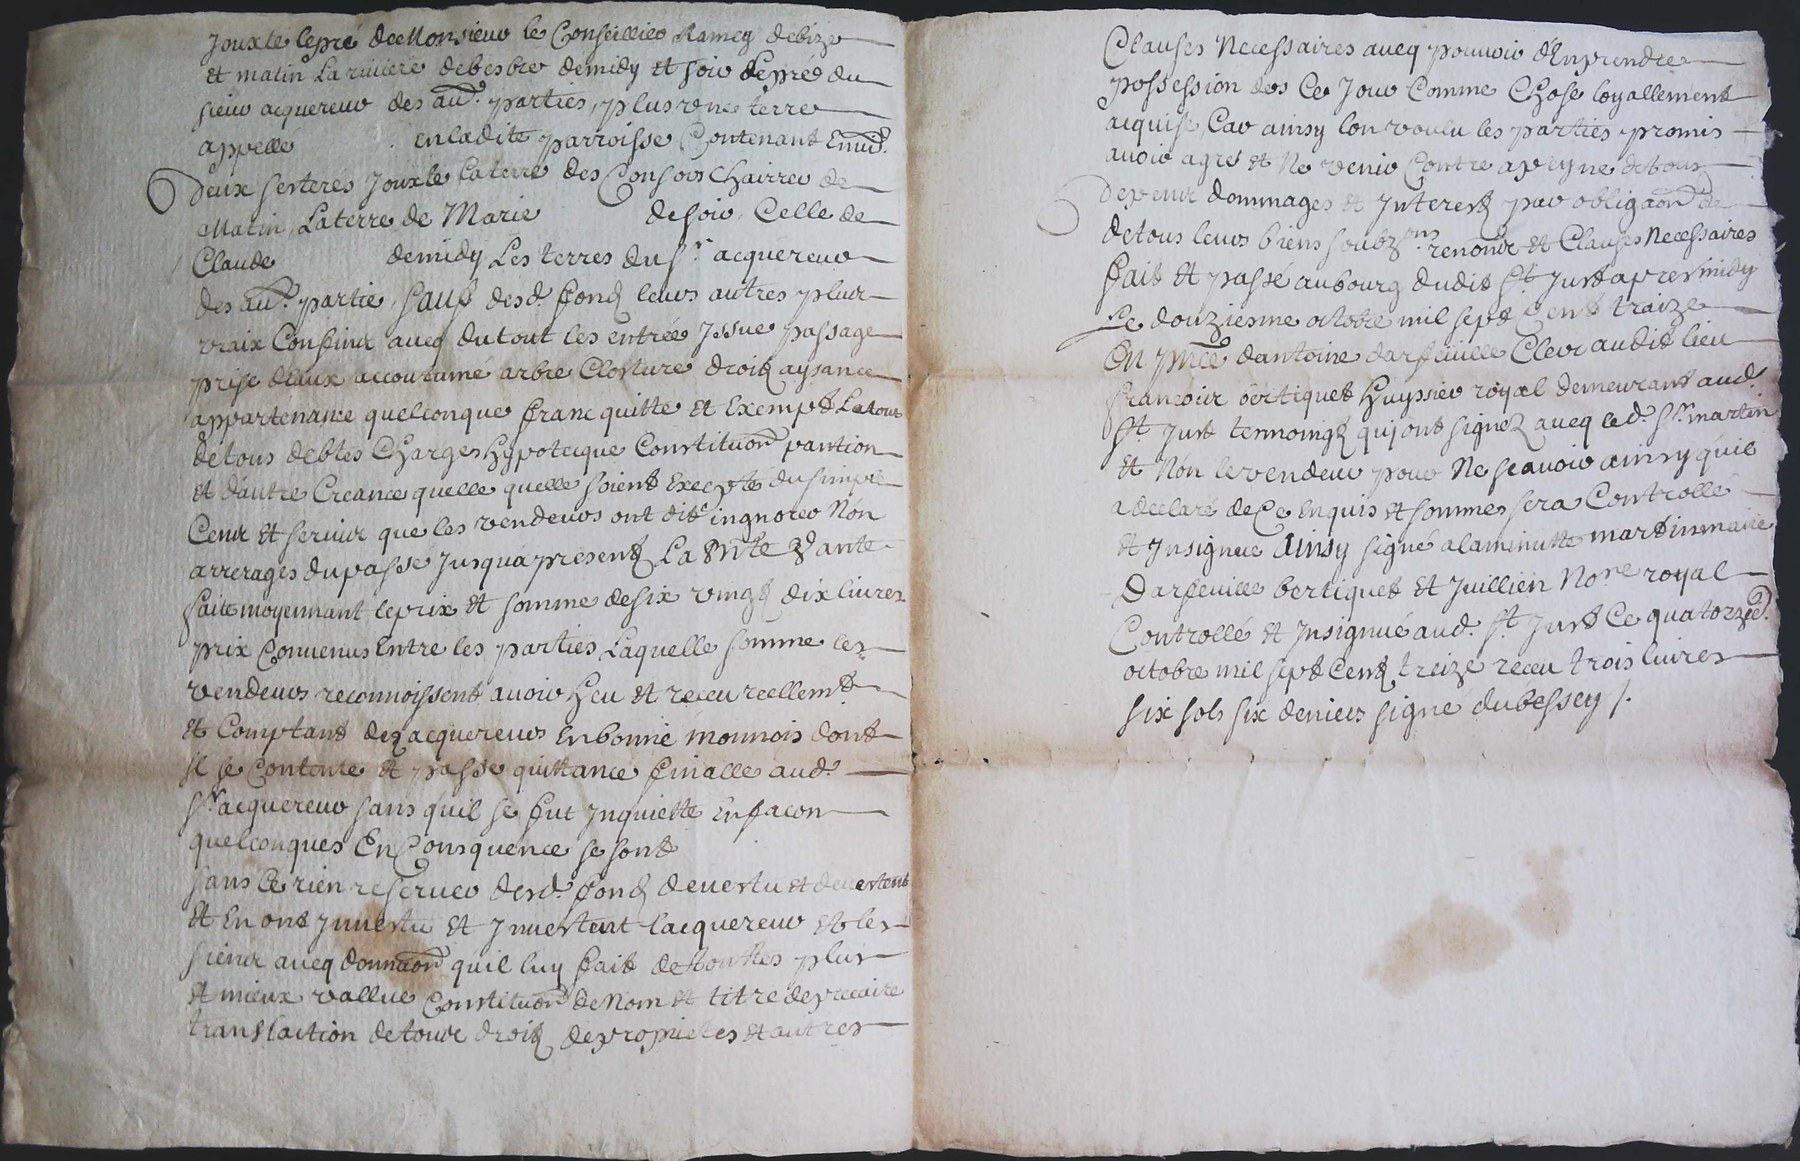 Jouxte le pré de Monsieur le Conseillier Ramey de bize
et matin La riviere de besbre de midy et soir Le pré du
sieur acquereur des au.s parties, plus une terre
appellé en ladite parroisse Contenant Envir.
deux sesteres Jouxte la terre des Consors Chairre de
Matin, La terre de Marie de soir, Celle de
Claude de midy Les terres du Sr. acquereur
des au.s partie, sauf desd. fonds leurs autres plus
vraix Confins avec du tout les entrée Issue passage
prise deaux accoutumé arbre Closture droits aysance
appartenance quelconque franc quitte et Exempt Le tout
de tous debtes Charges hypotecque Constituon pantion
et dautre Creance quelle quelle soient Excepté du simple
Cens et servis que les vendeurs ont dit ingnorer Nón
arrerages du passé Jusqua present, La pnte vante
faite moyennant le prix et somme de six vingt dix livres
prix Convenus Entre les parties Laquelle somme les
vendeurs reconnoissent avoir heu et receu reellemt
et Comptant des acquereurs En bonne monnois dont
il se Contente et passe quittance finalle aud.
Sr. acquereur sans quil se fut Inquiette En facon
quelconques En Consquence se sont
sans Ce rien reserver desd. fonds devestu et devestent
et En ont Investu et Investent lacquereur et les
siens avecq donnaon quil luy fait de touttes plus
et mieux vallue Constituon de Nom et titre de precaire
translaction de tous droits de proprietes et autres
Clauses Necessaires avecq pouvoir dEn prendre
possession des Ce Jour Comme Chose loyallement
acquise Car ainsy lon voulu les parties promis
avoir agreé et Ne venir Contre a peyne de tous
despens dommages et Interests par obligaon de
de tous leurs biens soubzons renonce et Clauses Necessaires
fait et passé au bourg dudit St. Just apres midy
Le douziesme octobre mil sept Cent traize
En pnce dantoine darfeuille Clerc audit lieu
francois bertiquet huyssier royal demeurant aud.
St. Just temoings qui ont signez avecq led. Sr. martin
et Nón le vendeur pour Ne scavoir ainsy quil
a declaré de Ce Enquis et sommes sera Controllé
et Insignue Ainsy signé a la minutte martin maire
Darfeuille bertiquet et Juillien Nore royal
Controllé et Insignué aud. St. Just Ce quatorze
octobre mil sept Cents traize receu trois livres
six sols six deniers signé dubessey /.